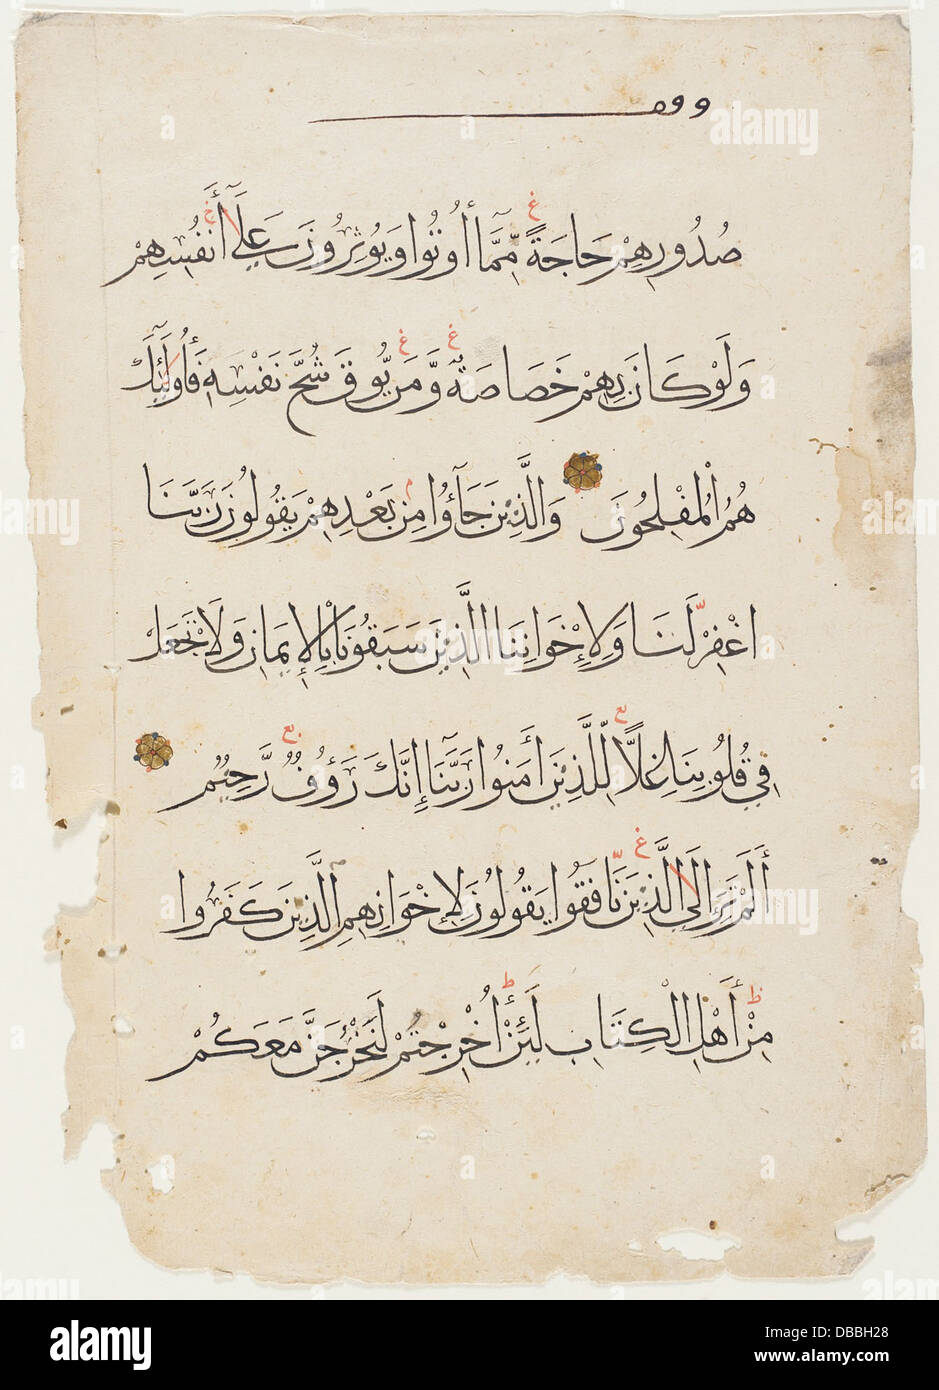 وقف
صُدُورِهِمْ حَاجَةً مِّمَّا أُوتُوا وَيُوثِرُونَ عَلَى أَنفُسِهِمْ
وَلَوْ كَانَ بِهِمْ خَصَاصَةٌ وَمَن يُوقَ شُحَّ نَفْسِهِ فَأُولَئِكَ
هُمُ الْمُفْلِحُونَ وَالَّذِينَ جَاءُوا مِن بَعْدِهِمْ يَقُولُونَ رَبَّنَا
اغْفِرْ لَنَا وَلِإِخْوَانِنَا الَّذِينَ سَبَقُونَا بِالْإِيمَانِ وَلَا تَجْعَلْ
فِي قُلُوبِنَا غِلًّا لِّلَّذِينَ أَمَنُوا رَبَّنَا إِنَّكَ رَؤُفٌ رَّحِيمٌ
أَلَمْ تَرَ إِلَى الَّذِينَ نَافَقُوا يَقُولُونَ لِإِخْوَانِهِمِ الَّذِينَ كَفَرُوا
مِنْ أَهْلِ الْكِتَابِ لَئِنْ أُخْرِجْتُمْ لَنَخْرُجَنَّ مَعَكُمْ
alamy
Image ID: DBBH28
www.alamy.com